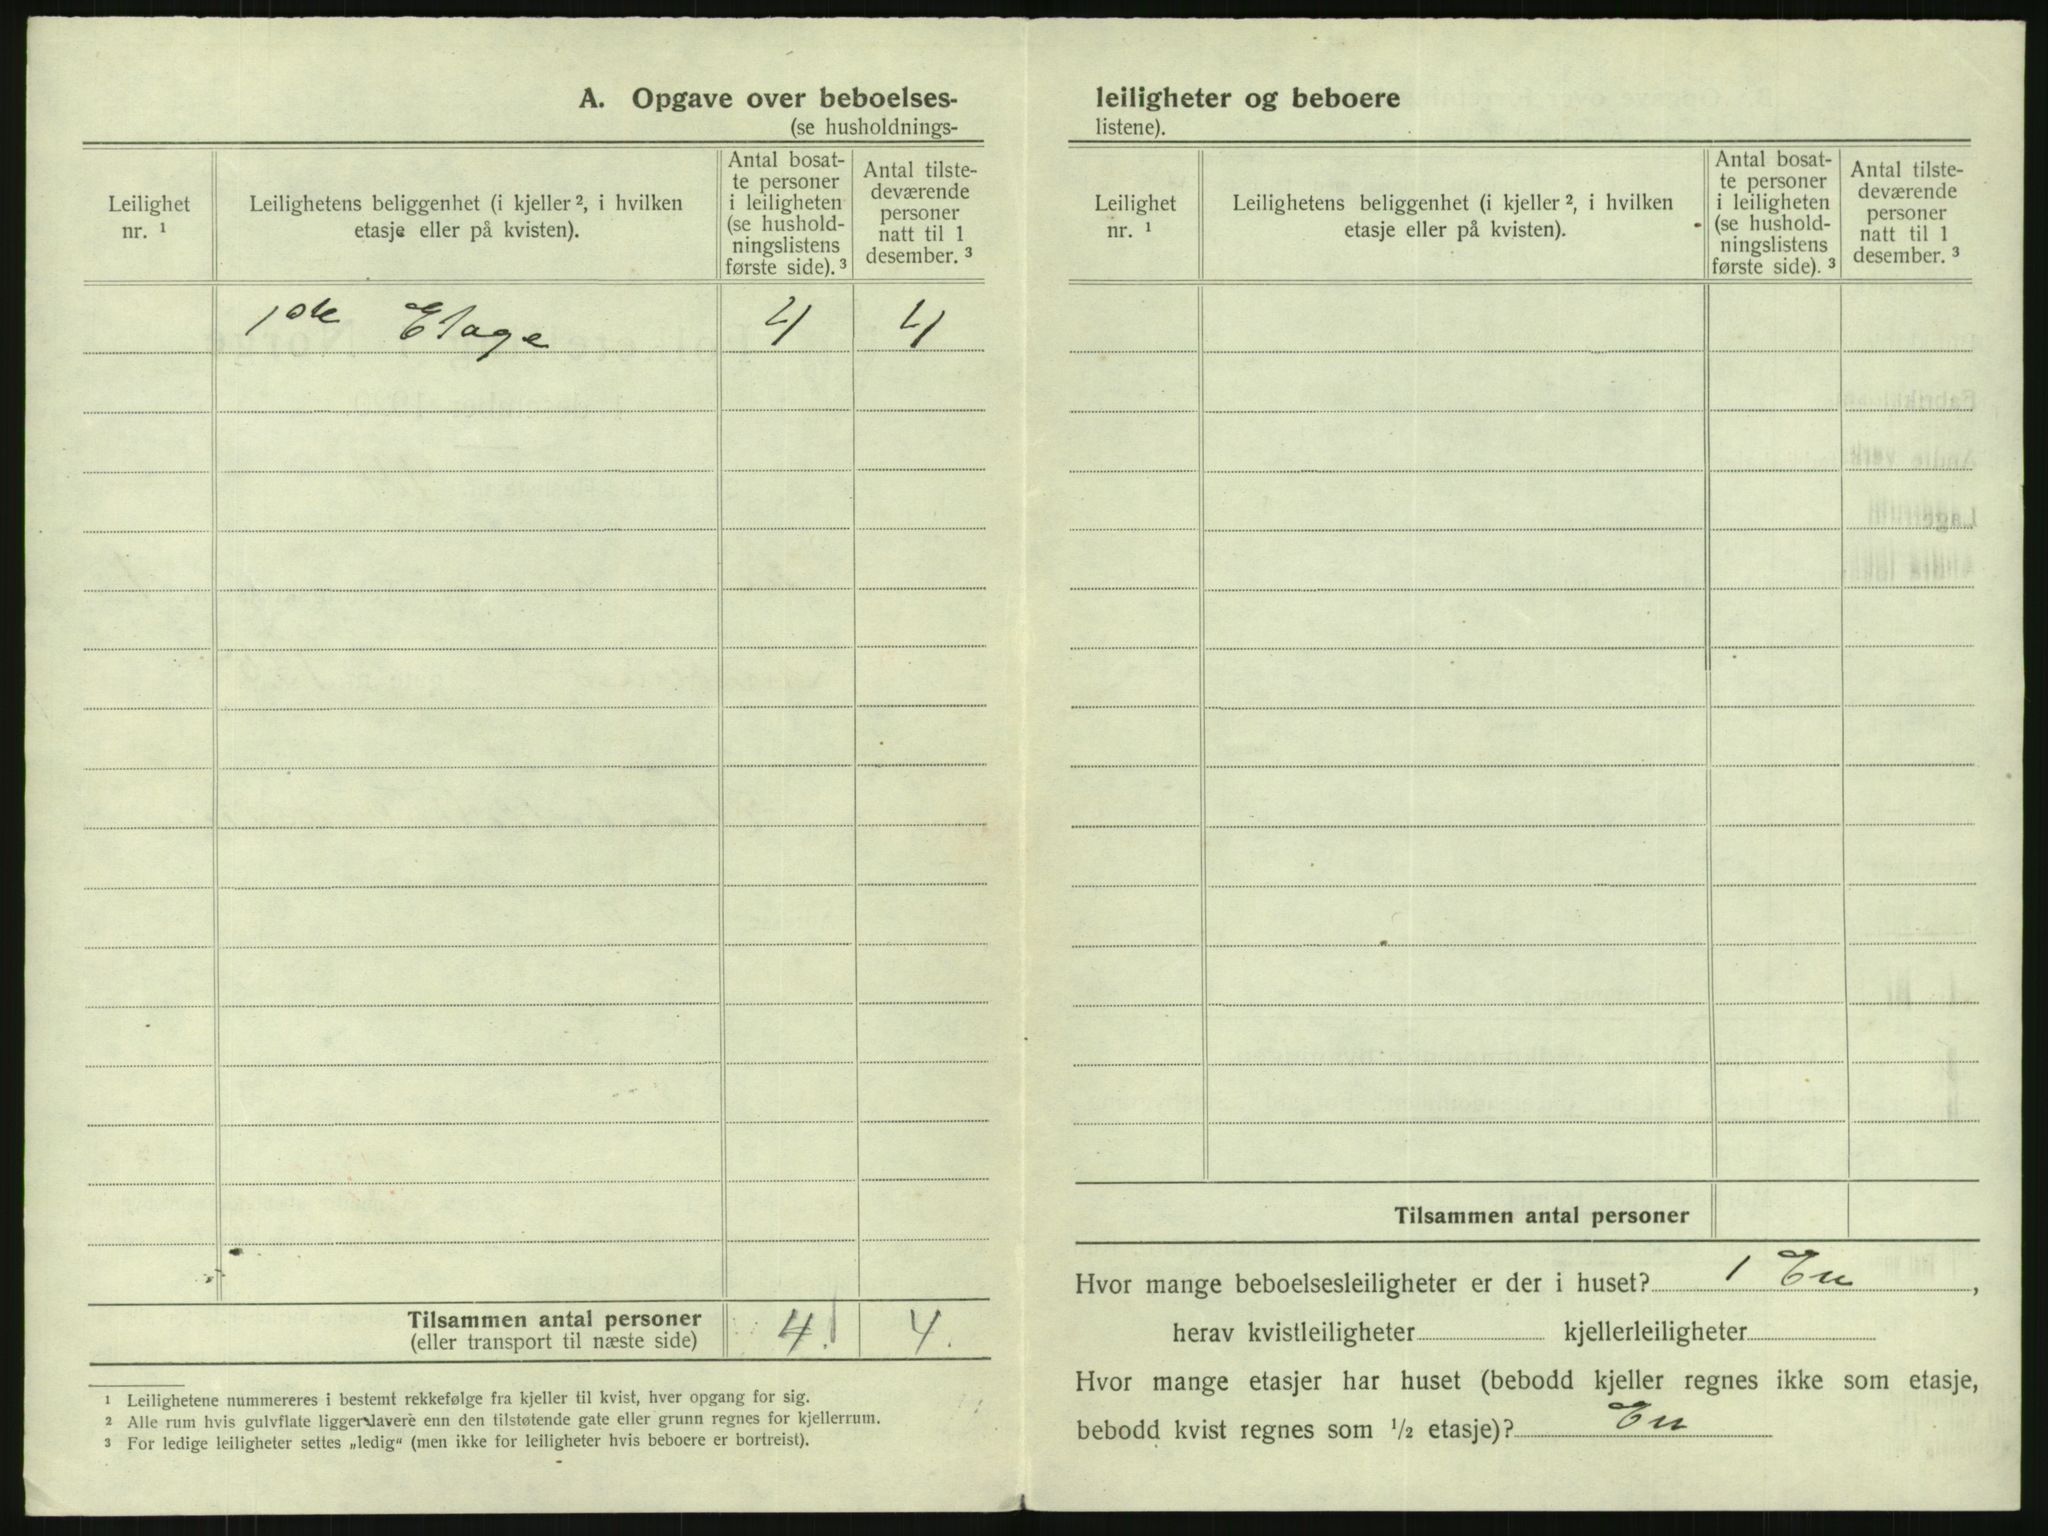 A. Opgave over beboelses-
(se husholdnings-
Leilighet
nr. ¹
Leilighetens beliggenhet (i kjeller ², i hvilken
etasje eller på kvisten).
Antal bosat-
te personer
i leiligheten
(se hushold-
ningslistens
første side). ³
Antal tilste-
deværende
personer
natt til 1
desember. ³
1ste Etage 4 4
Tilsammen antal personer 4. 4.
(eller transport til næste side)
¹ Leilighetene nummereres i bestemt rekkefølge fra kjeller til kvist, hver opgang for sig.
² Alle rum hvis gulvflate ligger lavere enn den tilstøtende gate eller grunn regnes for kjellerrum.
³ For ledige leiligheter settes „ledig“ (men ikke for leiligheter hvis beboere er bortreist).
leiligheter og beboere
listene).
Leilighet
nr. ¹
Leilighetens beliggenhet (i kjeller ², i hvilken
etasje eller på kvisten).
Antal bosat-
te personer
i leiligheten
(se hushold-
ningslistens
første side). ³
Antal tilste-
deværende
personer
natt til 1
desember. ³
Tilsammen antal personer
Hvor mange beboelsesleiligheter er der i huset? 1 En ,
herav kvistleiligheter kjellerleiligheter
Hvor mange etasjer har huset (bebodd kjeller regnes ikke som etasje,
bebodd kvist regnes som ½ etasje)? En